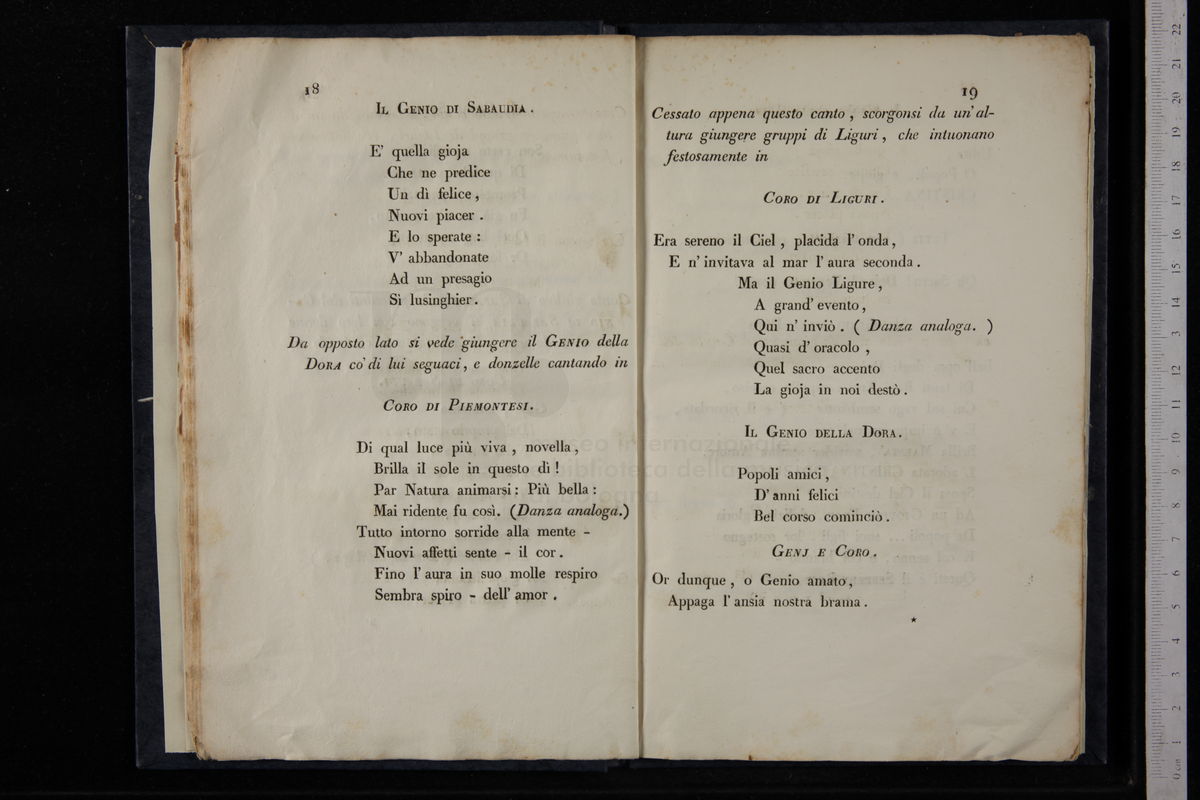 18
Il Genio di Sabaudia .
E' quella gioja
Che ne predice
Un dì felice ,
Nuovi piacer .
E lo sperate :
V' abbandonate
Ad un presagio
Sì lusinghier .
Da opposto lato si vede giungere il Genio della
Dora co' di lui seguaci , e donzelle cantando in
Coro di Piemontesi .
Di qual luce più viva , novella ,
Brilla il sole in questo dì !
Par Natura animarsi : Più bella :
Mai ridente fu così . (Danza analoga.)
Tutto intorno sorride alla mente -
Nuovi affetti sente - il cor .
Fino l' aura in suo molle respiro
Sembra spiro - dell' amor .
19
Cessato appena questo canto , scorgonsi da un' al-
tura giungere gruppi di Liguri , che intuonano
festosamente in
Coro di Liguri .
Era sereno il Ciel , placida l' onda ,
E n' invitava al mar l' aura seconda .
Ma il Genio Ligure ,
A grand' evento ,
Qui n' inviò . ( Danza analoga. )
Quasi d' oracolo ,
Quel sacro accento
La gioja in noi destò .
Il Genio della Dora .
Popoli amici ,
D' anni felici
Bel corso cominciò .
Genj e Coro .
Or dunque , o Genio amato ,
Appaga l' ansia nostra brama .
*